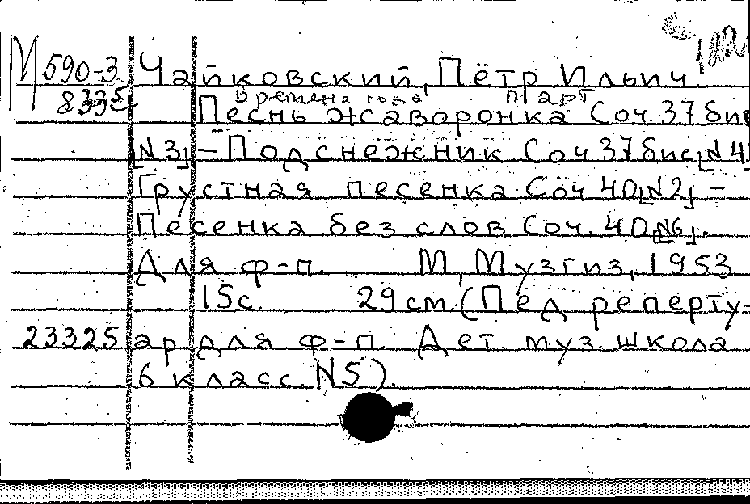 М 590-3 Чайковский, Пётр Ильич
8335 Времена года март
Песнь жаворонка Соч 37 бис
[N3] – Подснежник Соч 37 бис [N4]
Грустная песенка Соч 40 [N2] –
Песенка без слов Соч. 40 [N6].
Для ф-п. М, Музгиз, 1953
15с. 29 см (Пед реперту-
23325 ар для ф-п. Дет муз школа
6 класс. N5).